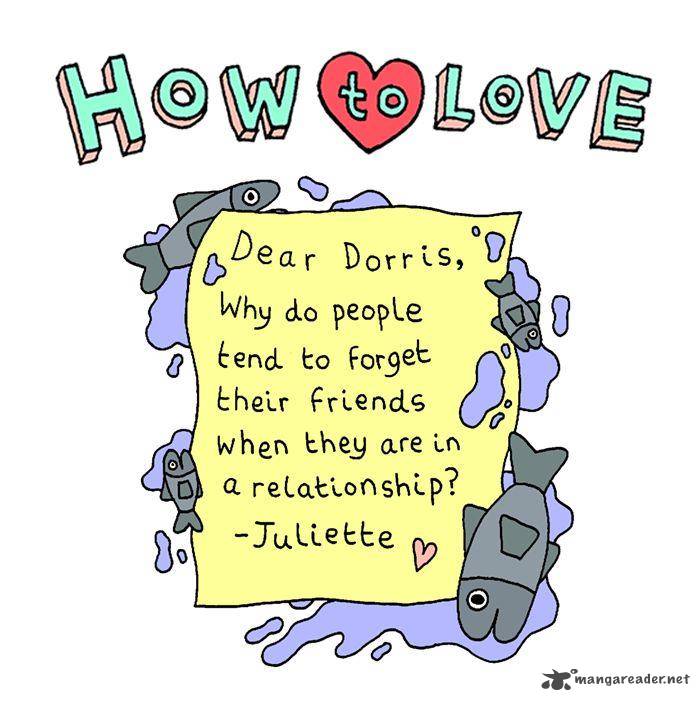 HOW to LOVE
Dear Dorris,
Why do people
tend to forget
their friends
when they are in
a relationship?
-Juliette
mangareader.net